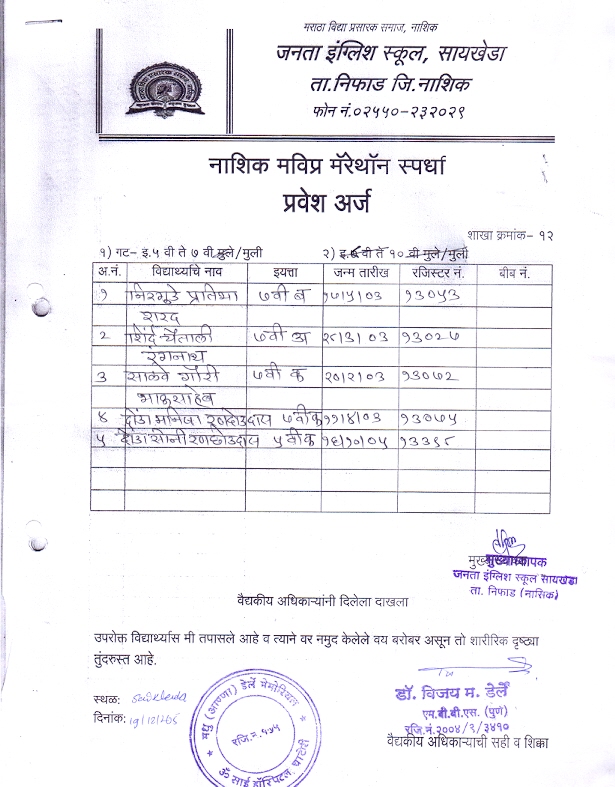 मराठा विद्या प्रसारक समाज, नाशिक
जनता इंग्लिश स्कूल, सायखेडा
ता.निफाड जि.नाशिक
फोन नं.०२५५०-२३२०२९
नाशिक मविप्र मॅरेथॉन स्पर्धा
प्रवेश अर्ज
शाखा क्रमांक- १२
१) गट- इ.५ वी ते ७ वी मुले/मुली २) इ. वी ते १० वी मुले/मुली
अ.नं. विद्यार्थ्याचे नाव इयत्ता जन्म तारीख रजिस्टर नं. बीब नं.
१ प्रतिभा ७वी ब १७।५।०३ १३०५३
शरद
२ शिंदे चैताली ७वी अ २८।३।०३ १३०२७
रंगनाथ
३ साळवे गौरी ७वी क २०।२।०३ १३०७२
भाऊसाहेब
४ ७वी क ११।४।०३ १३०७५
५ सोनी ५वी क १६।१०।०५ १३३९८
मुख्याध्यापक
जनता इंग्लिश स्कूल सायखेडा
ता. निफाड (नासिक)
वैद्यकीय अधिकाऱ्यांनी दिलेला दाखला
उपरोक्त विद्यार्थ्यास मी तपासले आहे व त्याने वर नमुद केलेले वय बरोबर असून तो शारीरिक दृष्ट्या
तुंदरुस्त आहे.
स्थळ: Saikheda
दिनांक:
मधु (आण्णा) डेर्ले मेमोरियल
रजि.नं.१५५
ॐ साई हॉस्पिटल, चाटोरी
डॉ. विजय म. डेर्ले
एम.बी.बी.एस. (पुणे)
रजि.नं.२००४/१/३४१०
वैद्यकीय अधिकाऱ्याची सही व शिक्का